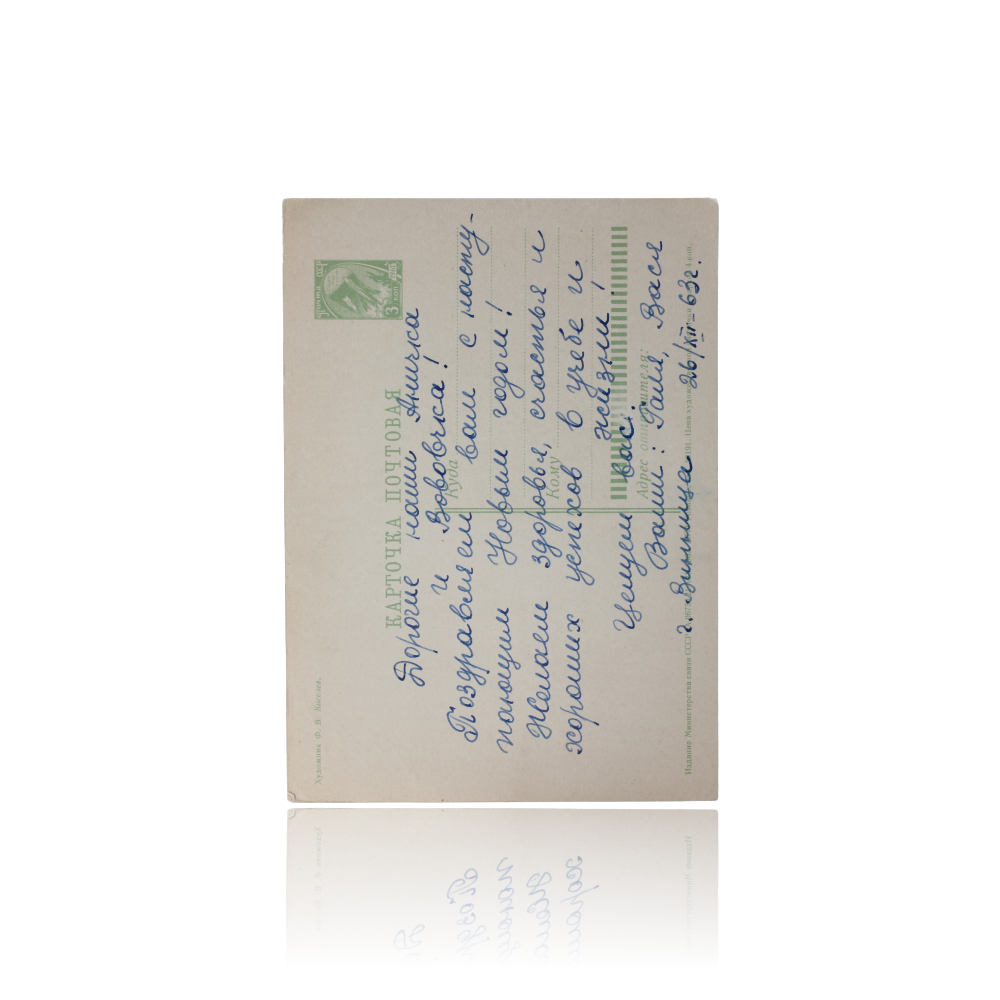 Художник Ф. В. Киселев.
ПОЧТА СССР
3 КОП
КАРТОЧКА ПОЧТОВАЯ
Дорогие наши Аничка
и Вовочка!
Поздравляем вам с насту-
пающим Новым годом!
Желаем здоровья, счастья и
хороших успехов в учебе и
жизни!
Целуем вас.
Ваши: Галя, Вася
г. Винница 26/XII-63г.
Куда
Кому
Адрес отправителя:
Издание Министерства связи СССР